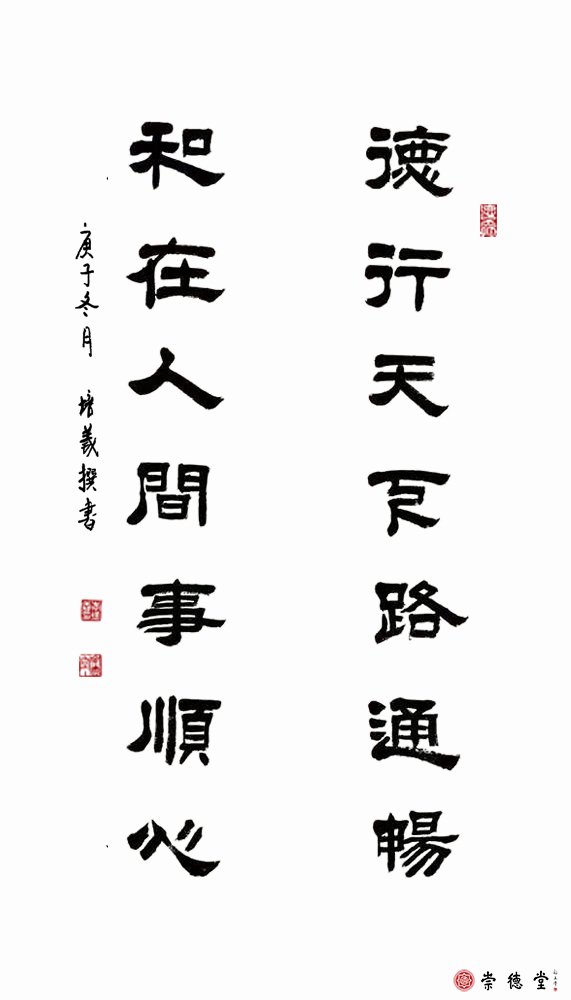 德行天下路通暢
和在人間事順心
庚子冬月 培義撰书
崇德堂